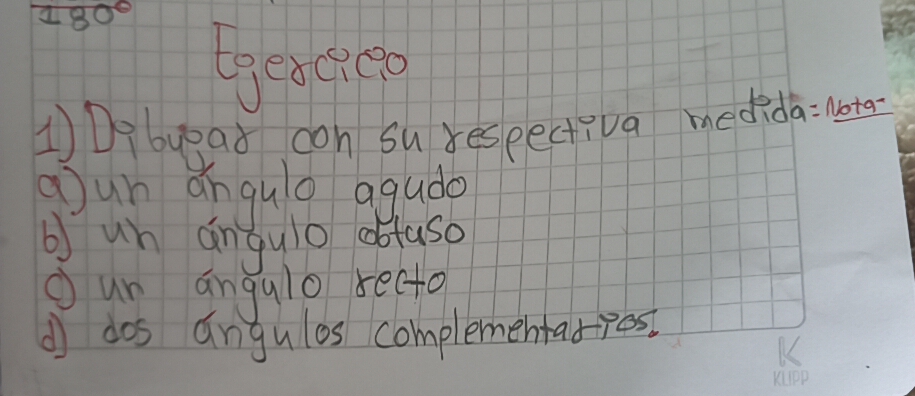 180°
Egercicio
1) Dibujar con su respectiva medida = Nota-
a) un ángulo agudo
b) un ángulo obtuso
c) un ángulo recto
d) dos ángulos complementarios.
K
KLIPP